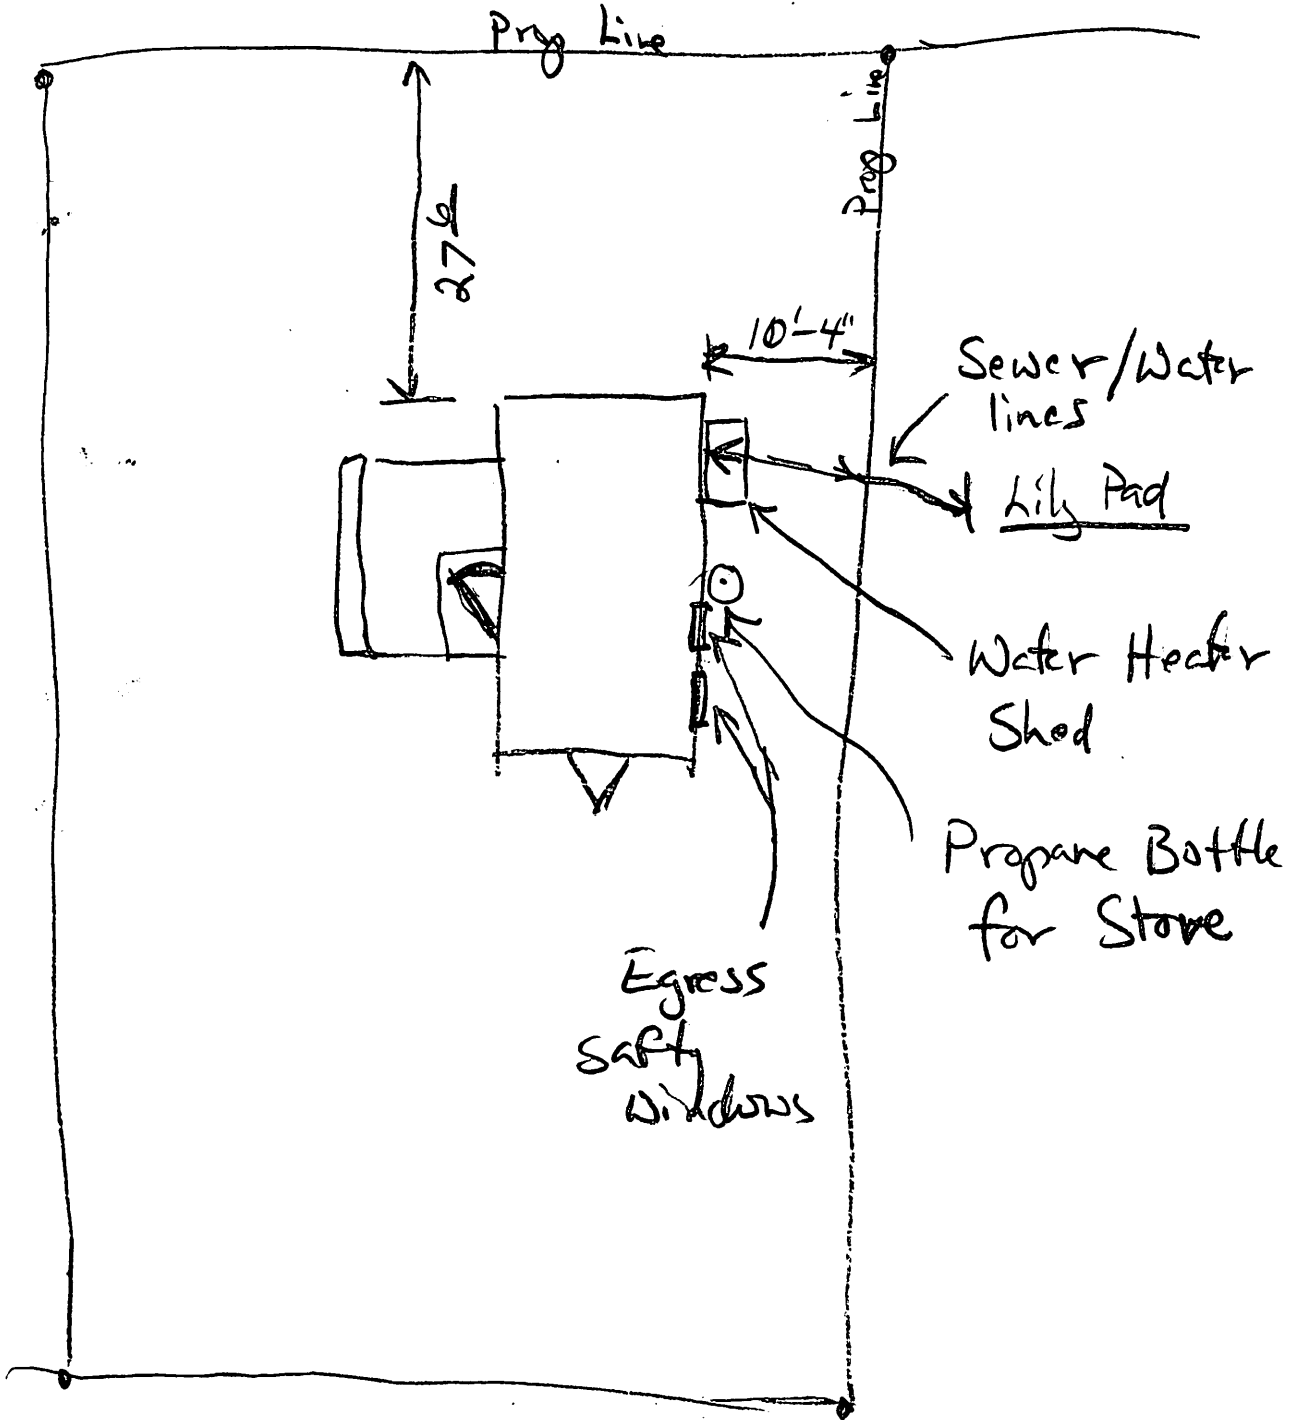 Prop Line
Prop Line
27 6
10'-4"
Sewer/Water
lines
Lily Pad
Water Heater
Shed
Propane Bottle
for Stove
Egress
Safty
Windows